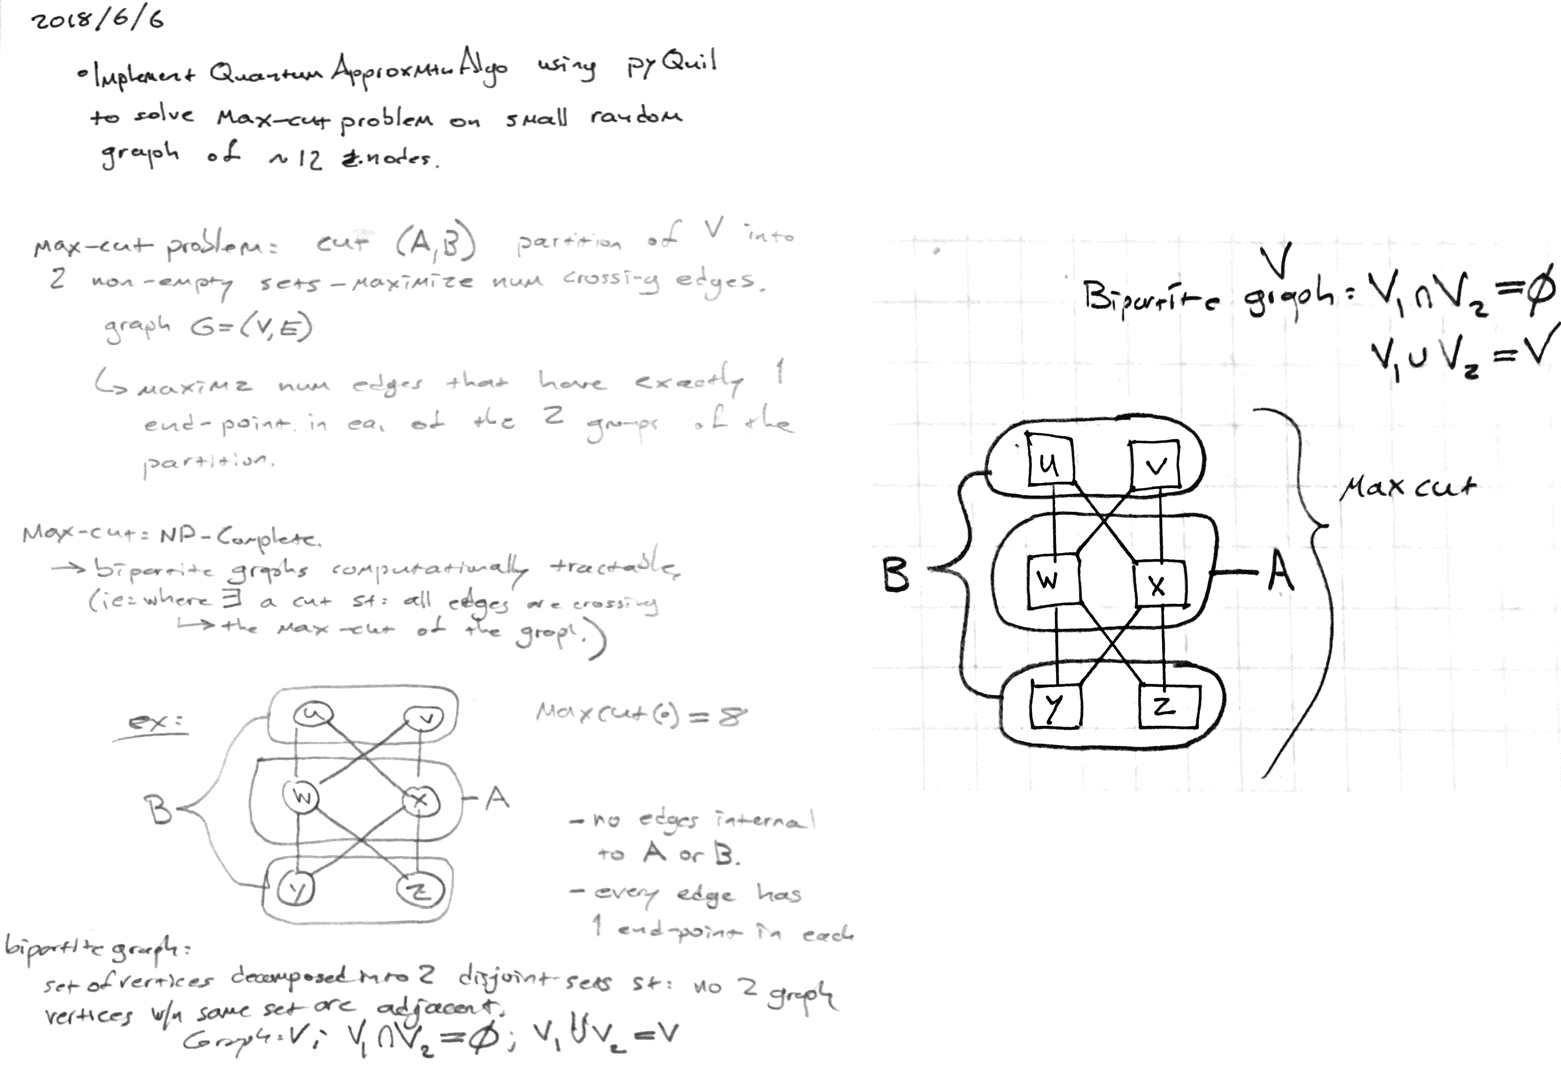 2018/6/6
• Implement Quantum Approxmtn Algo using pyQuil
to solve Max-cut problem on small random
graph of ~12 nodes.
Max-cut problem: cut (A,B) partition of V into
2 non-empty sets - maximize num crossing edges.
graph G=(V,E)
↳ maximz num edges that have exactly 1
end-point in ea. of the 2 groups of the
partition.
Max-cut: NP-Complete.
→ bipartite graphs computationally tractable,
(ie: where ∃ a cut st: all edges are crossing
↳ the max-cut of the graph.)
ex:
u v
w x
B
A
y z
Maxcut(G) = 8
- no edges internal
to A or B.
- every edge has
1 end-point in each
bipartite graph:
set of vertices decomposed into 2 disjoint sets st: no 2 graph
vertices w/n same set are adjacent.
Graph: V; V₁∩V₂=∅; V₁∪V₂=V
V
Bipartite graph: V₁∩V₂=∅
V₁∪V₂=V
u v
Max cut
B
w x
A
y z